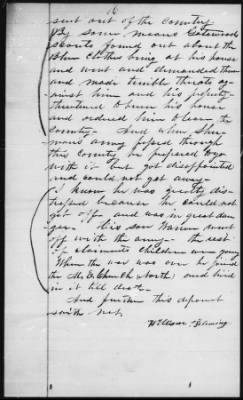 sent out of the Country
By some means Gatewoods
Scouts found out about the
Blue Clothes being at his house
and went and demanded them
and made terrible threats ag-
ainst him and his family
threatened to burn his house
and ordered him to leave the
country. And when Sher-
mans army passed through
this country he prepared to go
with it but got disappointed
and could not get away.
I know he was greatly dis-
tressed because he could not
get off and was in great dan-
ger. his son went
off with the army. the rest
of claimants children were young
When the war was over he joined
the M.E. Church North and lived
in it till death.
And further this deponent
saith not.